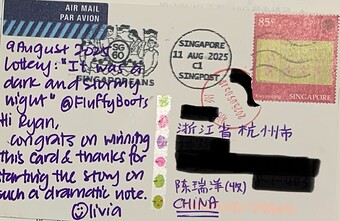 AIR MAIL
PAR AVION
9 August 2025
Lottery: "It was a
dark and stormy
night" @FluffyBoots
Hi Ryan,
congrats on winning
this card & thanks for
starting the story on
such a dramatic note.
Olivia
SG
60
SINGAPOREANS
SINGAPORE
11 AUG 2025
C1
SINGPOST
85¢
SINGAPORE
浙江省杭州市
陈瑞洋(收)
CHINA